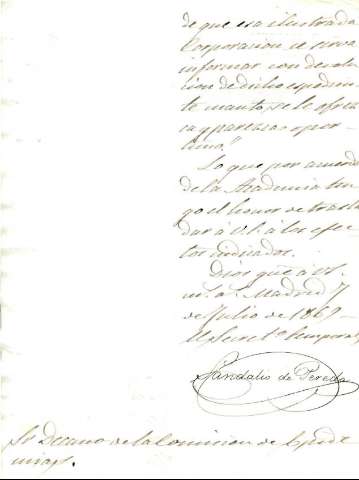 de que esa ilustrada
Corporacion se sirva
informar con devolu
cion de dicho espedien
te cuanto se le ofrez
ca y parezca opor
tuno."
Lo que por acuerdo
de la Academia ten
go el honor de trasla
dar á V.S. á los efec
tos indicados.
Dios gue á V.S.
m.s a.s Madrid 7
de Julio de 1869—
El Secret.o temporal
Sandalio de Pereda
Sr Decano de la Comision de Epide
mias.